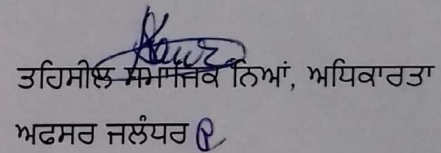 ਤਹਿਸੀਲ ਸਮਾਜਿਕ ਨਿਆਂ, ਅਧਿਕਾਰਤਾ
ਅਫਸਰ ਜਲੰਧਰ